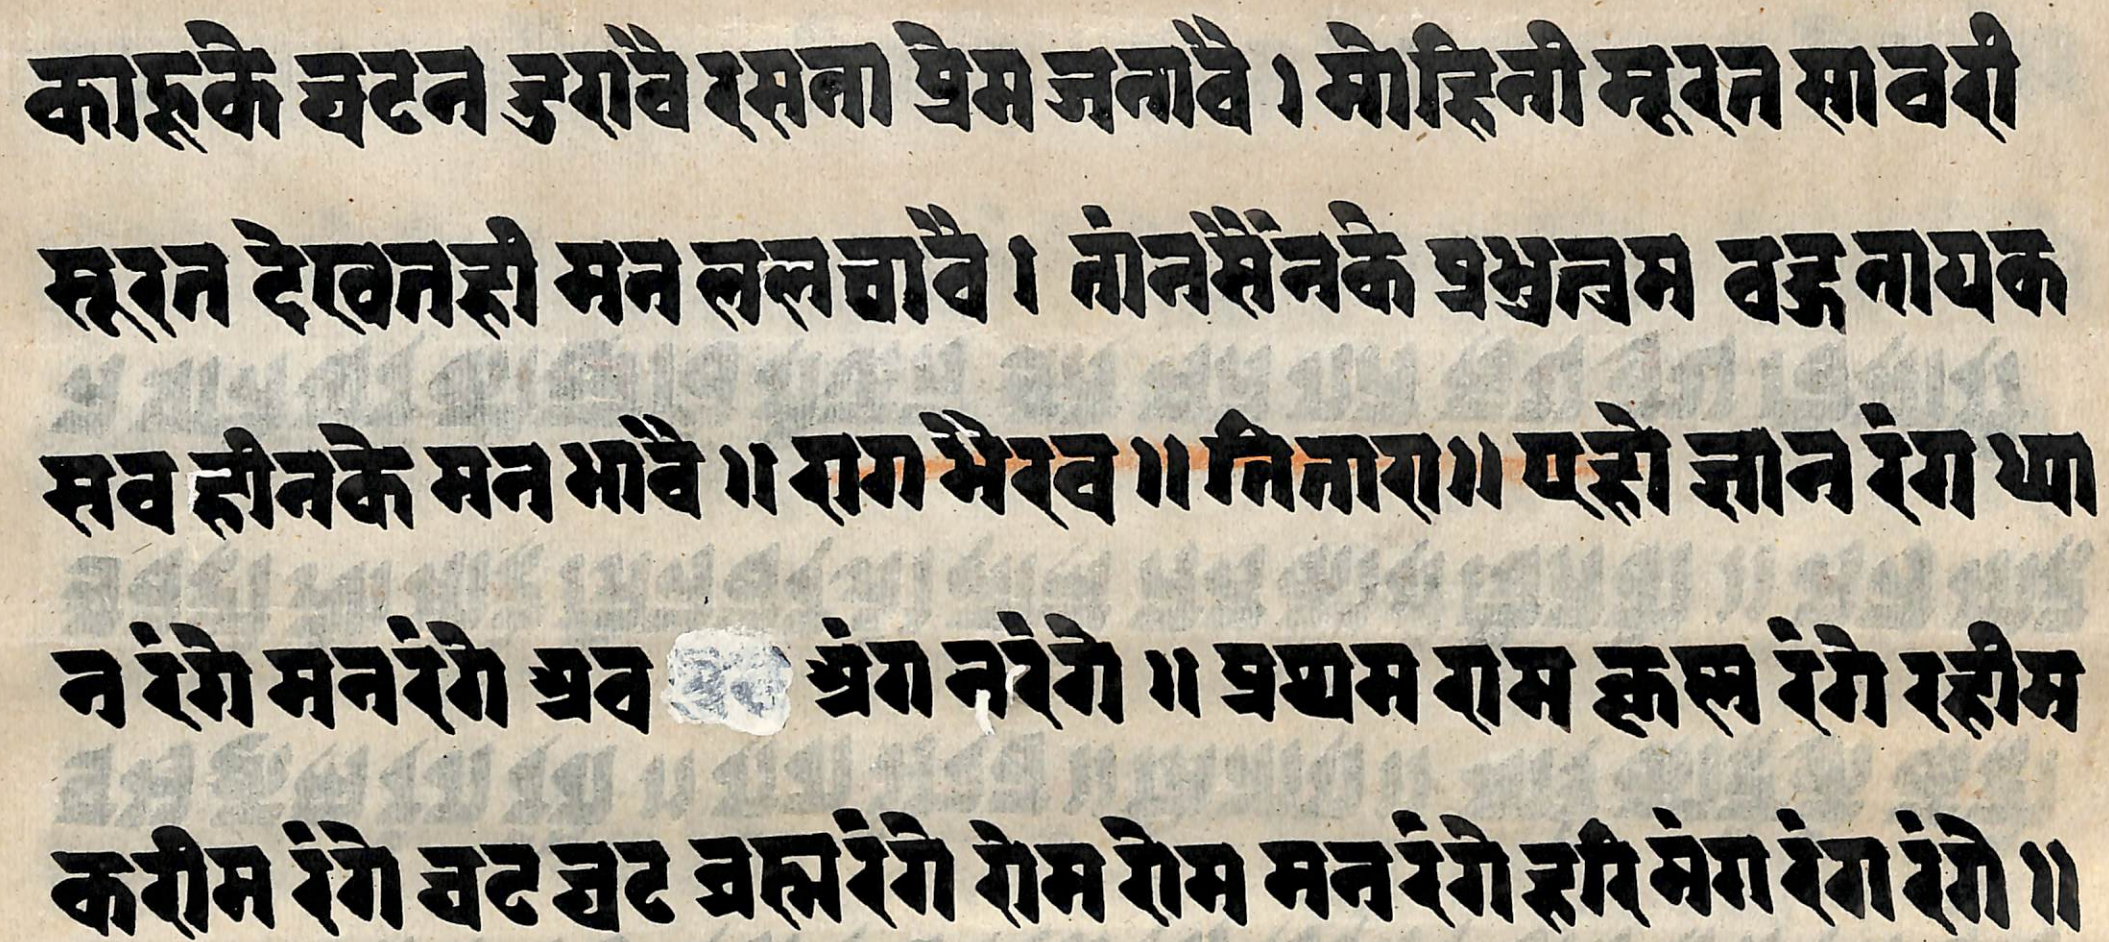 काहूके घटन दुरावै रसना प्रेम जनावै । मोहिनी मूरत सावरी
सूरत देखतही मन ललचावै । तांनसैंनके प्रभुतुम वहुनायक
सव हीनके मन भावै ॥ राग भैरव ॥ तितारा ॥ एहो ज्ञान रंग ध्या
न रंगे मनरंगे श्रव श्रंग नरंगे ॥ प्रथम राम कृस्न रंगे रहीम
करीम रंगे घट घट व्रह्मरंगे रोम रोम मनरंगे हरि मंग रंग रंगे ॥